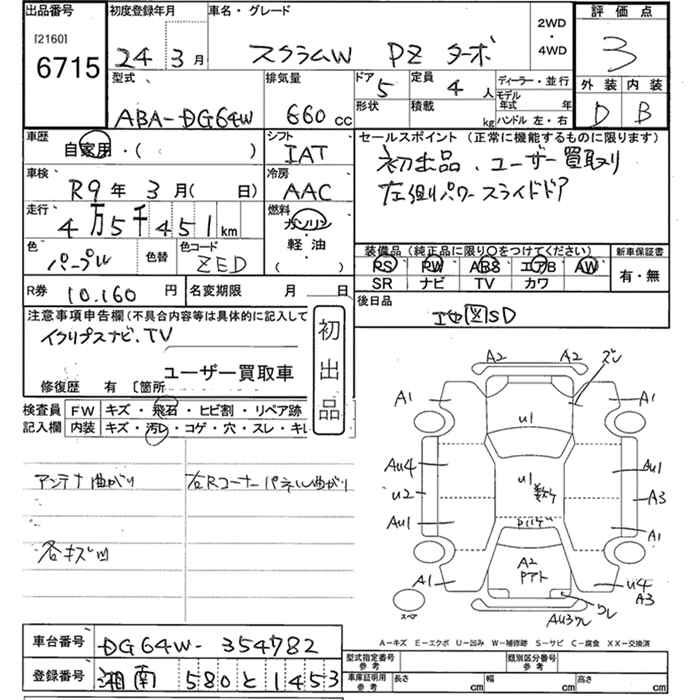 出品番号 初度登録年月 車名・グレード 2WD・4WD 評価点
[2160]
6715 24年3月 スクラムW PZ ターボ 3
型式 排気量 ドア 定員 ディーラー・並行 外装 内装
ABA-DG64W 660cc 5 4人 モデル年式 年 D B
形状 積載 kg ハンドル 左・右
車歴 シフト セールスポイント(正常に機能するものに限ります)
自家用・( ) IAT 初出品、ユーザー買取り
車検 冷房
R9年3月(日) AAC 左側パワースライドドア
走行 燃料
4万5千451km ガソリン
軽・油
( )
色 色替 色コード 装備品(純正品に限り○をつけてください) 新車保証書
パープル ZED PS PW ABS エアB AW 有・無
SR ナビ TV カワ
R券 10,160円 名変期限 月 日 後日品
地図SD
注意事項申告欄(不具合内容等は具体的に記入して
イクリプスナビ.TV
ユーザー買取車
修復歴 有 〔箇所
初出品
検査員 FW キズ・飛石・ヒビ割・リペア跡
記入欄 内装 キズ・汚レ・コゲ・穴・スレ・キレ
アンテナ曲がり 右Rコーナーパネル曲がり
各キズ凹
A2 A2 ズレ
A1 A1
U1
Au4 Au1
U2 U1 A3
Au1 A1
A2
Pアト
A1 U4
A3
スペア Au3ワレ ワレ
A-キズ E-エクボ U-凹み W-補修跡 S-サビ C-腐食 XX-交換済
車台番号 DG64W-354782
登録番号 湘南 580 と 1453
型式指定番号 参考 類別区分番号 参考
車庫証明用 参考 長さ cm 幅 cm 高さ cm